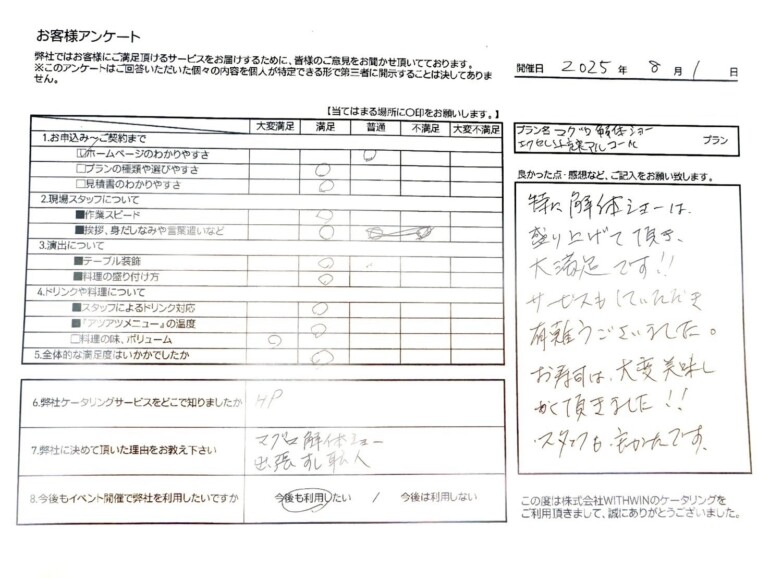 お客様アンケート
弊社ではお客様にご満足頂けるサービスをお届けするために、皆様のご意見をお聞かせ頂いております。
※このアンケートはご回答いただいた個々の内容を個人が特定できる形で第三者に開示することは決してありません。
開催日 2025 年 8 月 1 日
【当てはまる場所に○印をお願いします。】
大変満足 満足 普通 不満足 大変不満足
1.お申込み～ご契約まで
□ホームページのわかりやすさ
□プランの種類や選びやすさ
□見積書のわかりやすさ
2.現場スタッフについて
■作業スピード
■挨拶、身だしなみや言葉遣いなど
3.演出について
■テーブル装飾
■料理の盛り付け方
4.ドリンクや料理について
■スタッフによるドリンク対応
■「アツアツメニュー」の温度
□料理の味、ボリューム
5.全体的な満足度はいかがでしたか
6.弊社ケータリングサービスをどこで知りましたか HP
7.弊社に決めて頂いた理由をお教え下さい マグロ解体ショー
出張すし職人
8.今後もイベント開催で弊社を利用したいですか 今後も利用したい / 今後は利用しない
プラン名 マグロ解体ショー
プラン
良かった点・感想など、ご記入をお願い致します。
特に解体ショーは、
盛り上げて頂き、
大満足です!!
サービスもしていただき
有難うございました。
お寿司は、大変美味し
かく頂きました!!
スタッフも
です。
この度は株式会社WITHWINのケータリングを
ご利用頂きまして、誠にありがとうございました。